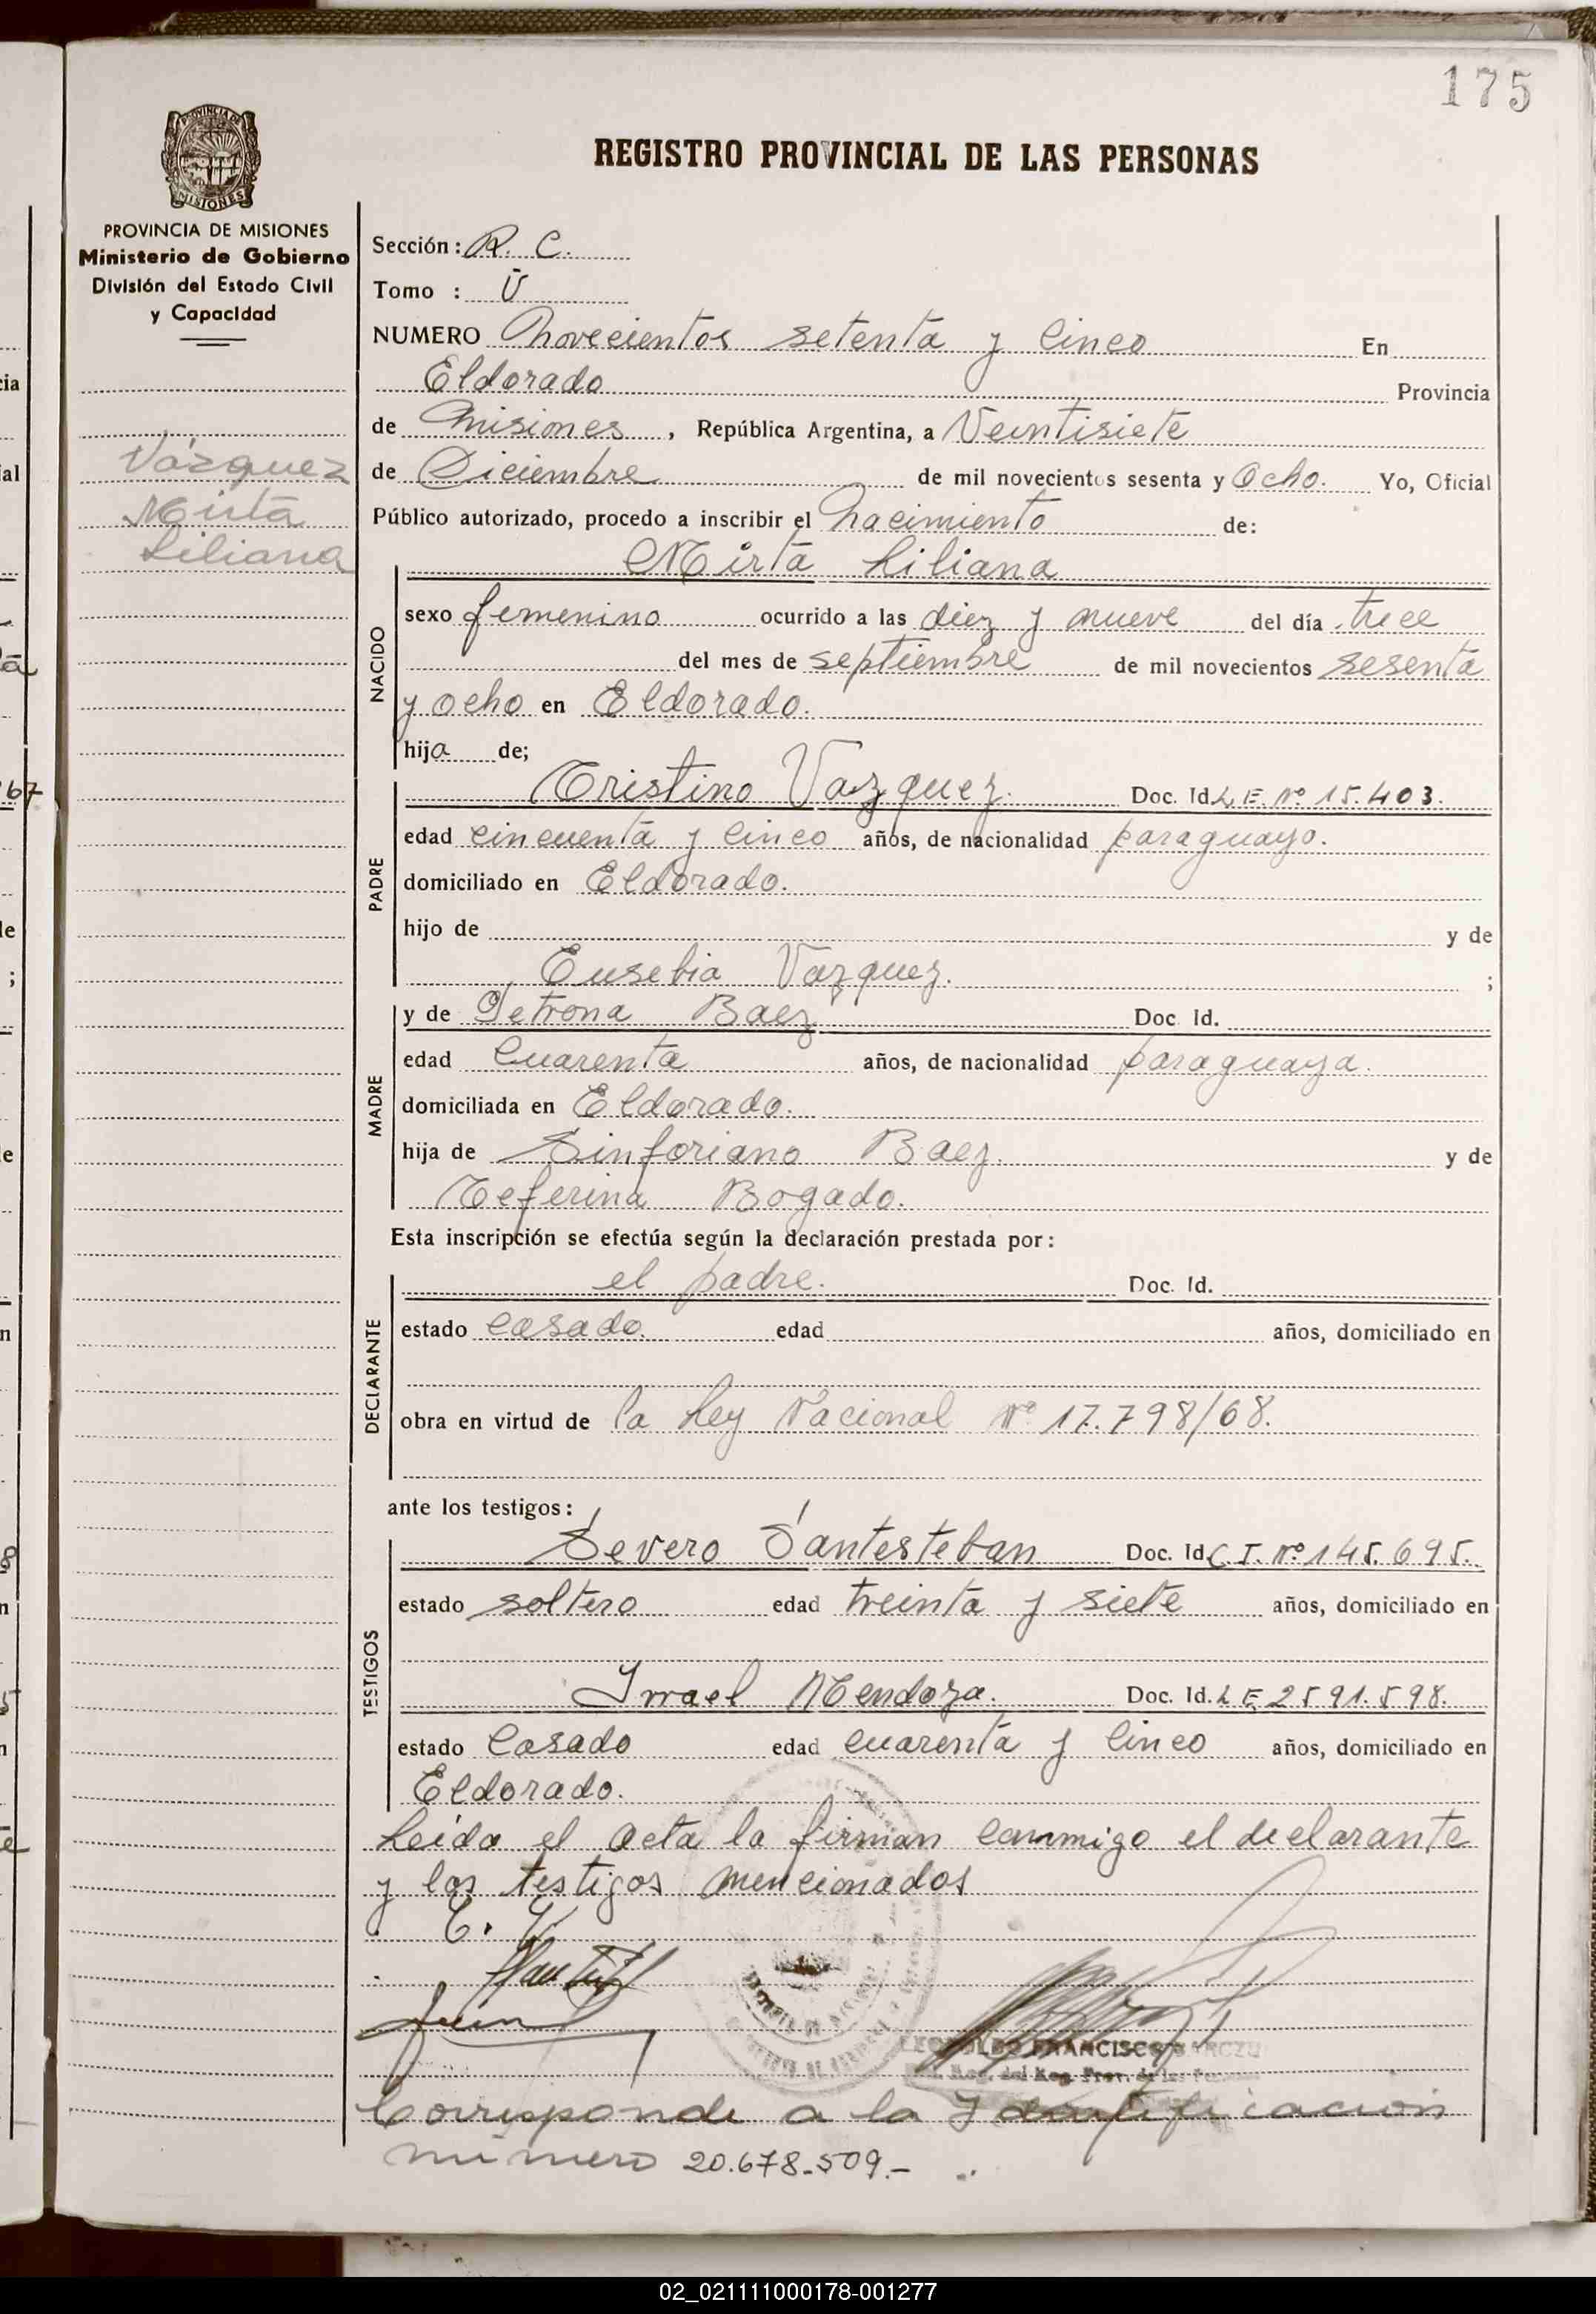 175
REGISTRO PROVINCIAL DE LAS PERSONAS
PROVINCIA DE MISIONES
Ministerio de Gobierno
División del Estado Civil
y Capacidad
Vázquez
Mirta
Liliana
Sección: R. C.
Tomo : Ū
NUMERO Novecientos setenta y cinco En
Eldorado Provincia
de Misiones, República Argentina, a Veintisiete
de Diciembre de mil novecientos sesenta y Ocho. Yo, Oficial
Público autorizado, procedo a inscribir el Nacimiento de:
Mirta Liliana
NACIDO
sexo femenino ocurrido a las diez y nueve del día trece
del mes de septiembre de mil novecientos sesenta
y ocho en Eldorado.
hija de;
PADRE
Cristino Vazquez. Doc. Id. L E Nº 15.403.
edad cincuenta y cinco años, de nacionalidad paraguayo.
domiciliado en Eldorado.
hijo de y de
Eusebia Vazquez. ;
MADRE
y de Petrona Baez Doc. Id.
edad Cuarenta años, de nacionalidad paraguaya.
domiciliada en Eldorado.
hija de Sinforiano Baez. y de
Ceferina Bogado.
Esta inscripción se efectúa según la declaración prestada por:
DECLARANTE
el padre. Doc. Id.
estado casado. edad años, domiciliado en
obra en virtud de la Ley Nacional Nº 17.798/68.
ante los testigos:
TESTIGOS
Severo Santesteban Doc. Id C.I. Nº 145.695.
estado soltero edad treinta y siete años, domiciliado en
Ismael Mendoza. Doc. Id. L E 2591.598.
estado Casado edad cuarenta y cinco años, domiciliado en
Eldorado.
Leida el acta la firman conmigo el declarante
y los testigos mencionados
C. V.
LEOPOLDO FRANCISCO
del Reg. Prov. de las
Corresponde a la Identificación
número 20.678.509.-
02_021111000178-001277